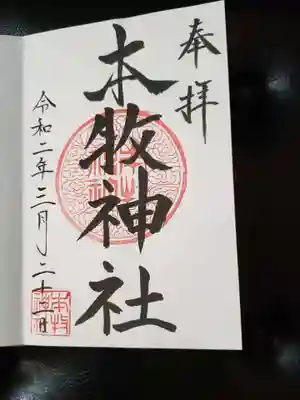 奉拝
本牧神社
令和二年三月二十二日